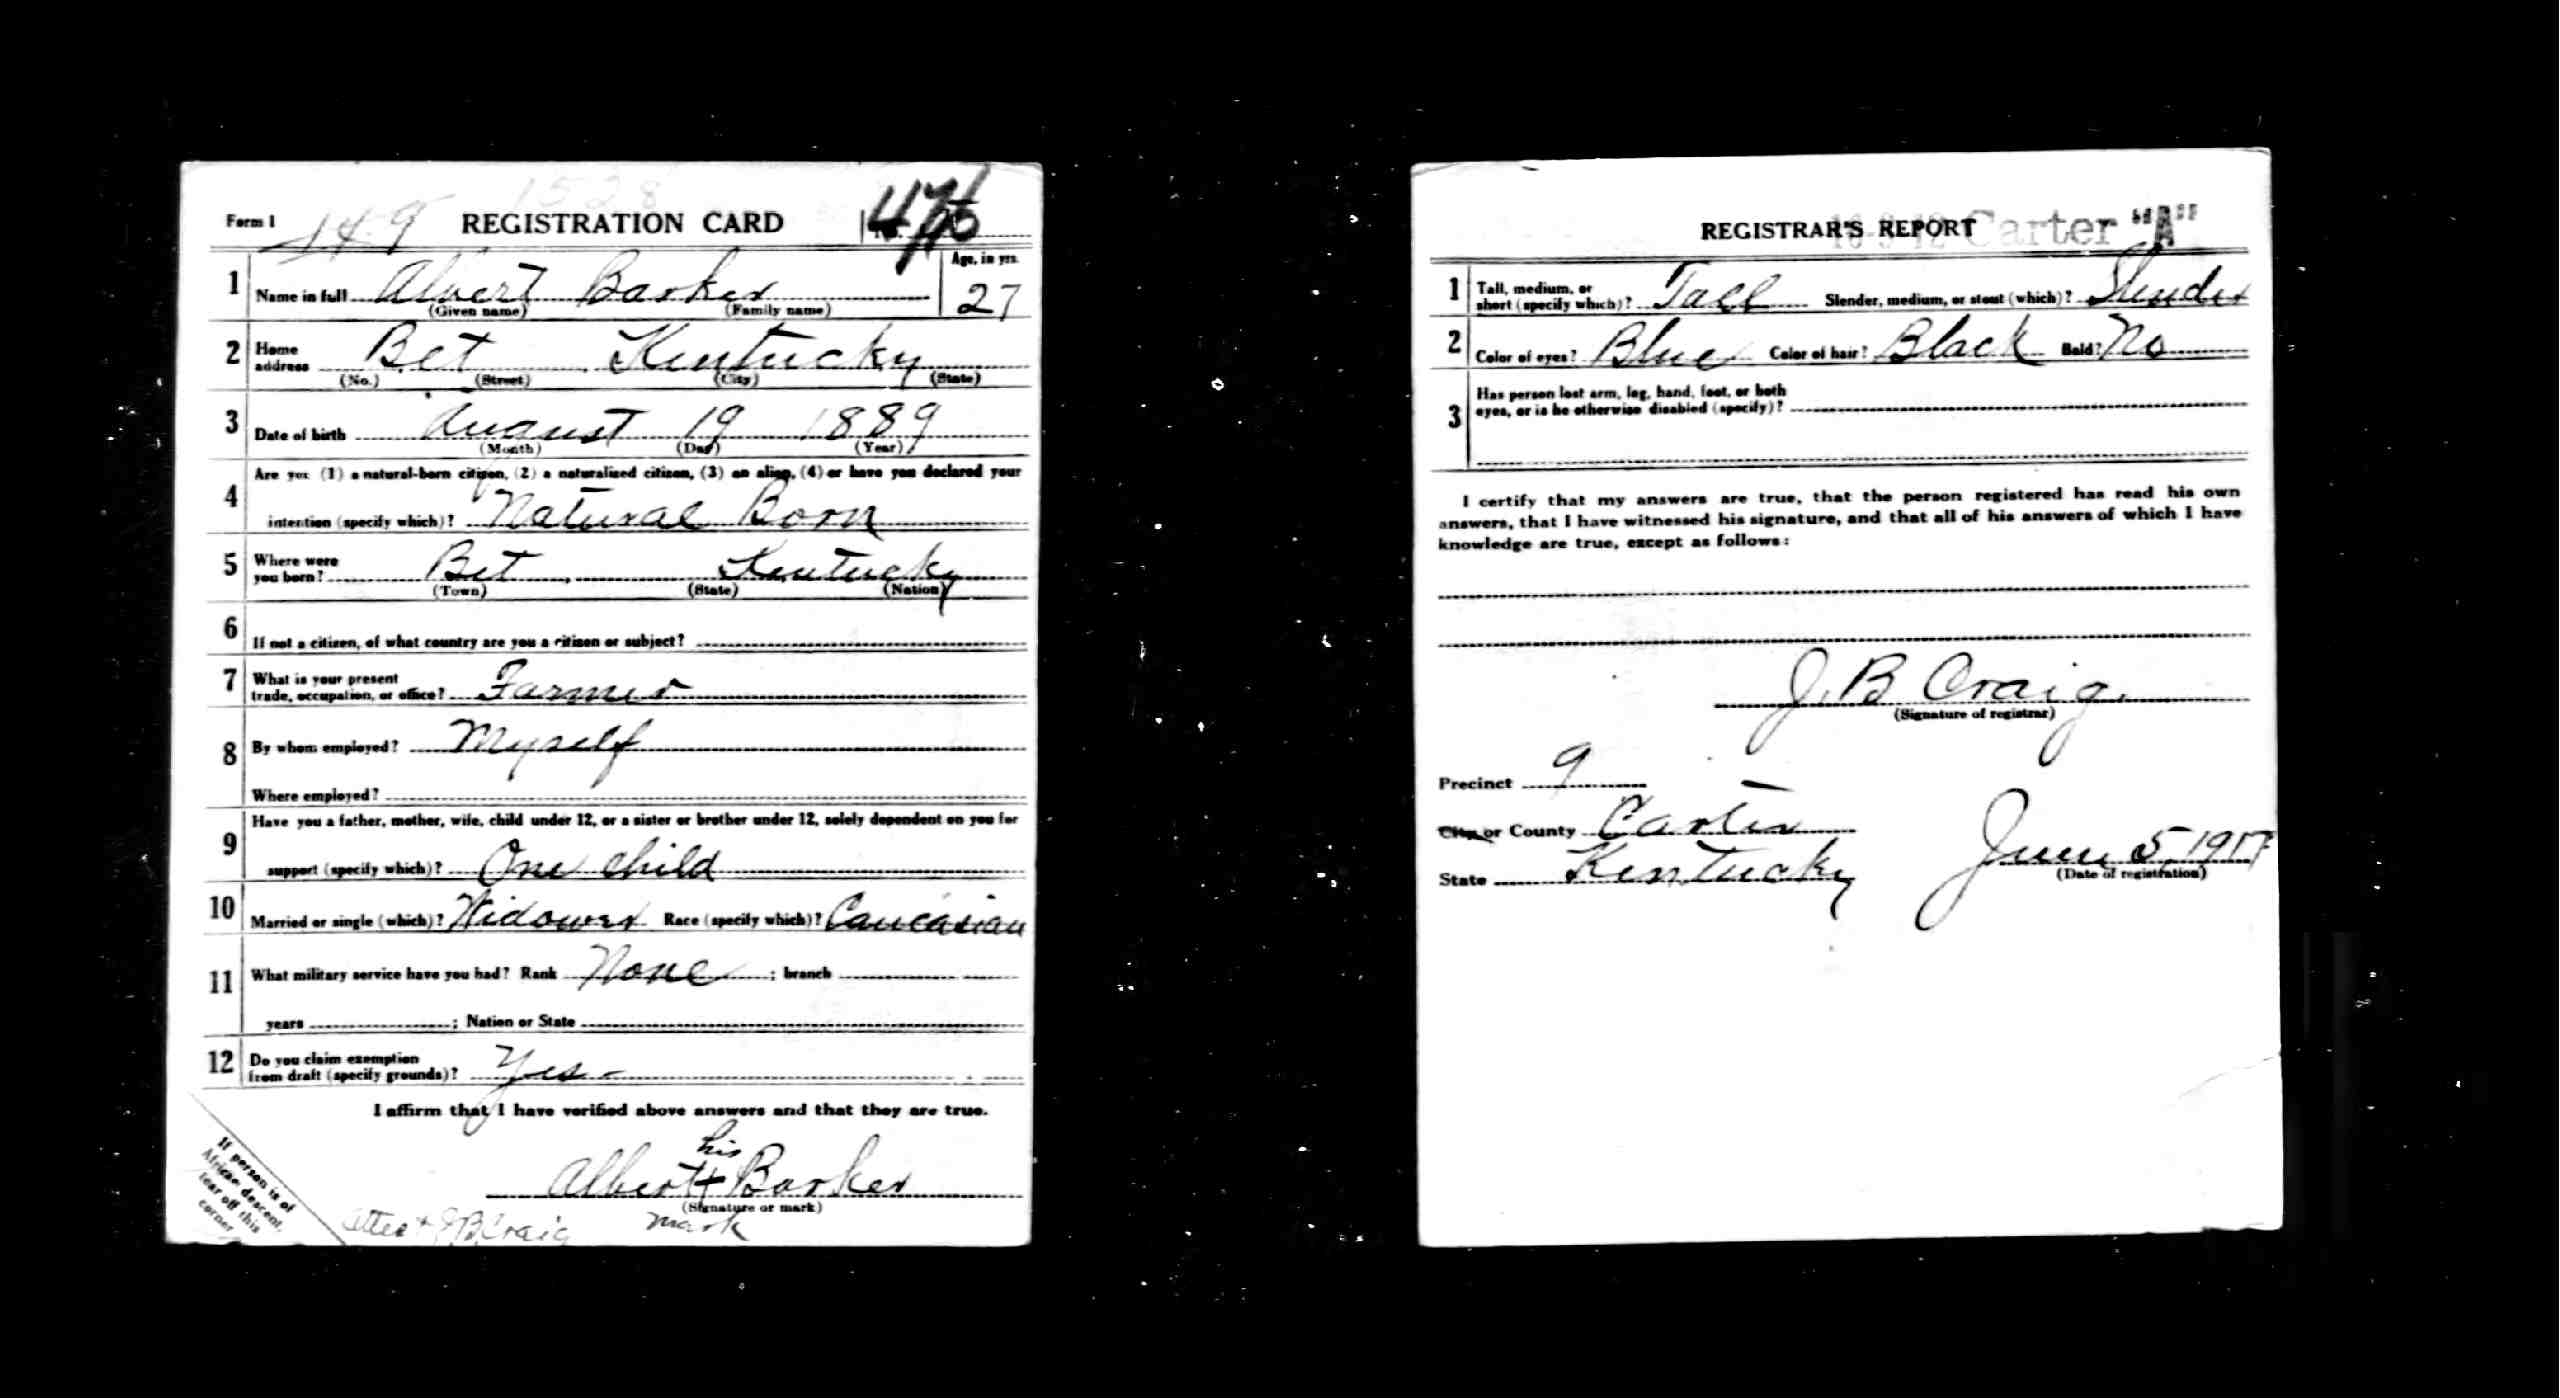 1528
Form 1 149 REGISTRATION CARD
1 Name in full Albert Barker Age, in yrs. 27
(Given name) (Family name)
2 Home address Bet Kentucky
(No.) (Street) (City) (State)
3 Date of birth August 19 1889
(Month) (Day) (Year)
4 Are you (1) a natural-born citizen, (2) a naturalized citizen, (3) an alien, (4) or have you declared your
intention (specify which)? Natural Born
5 Where were you born? Bet, Kentucky
(Town) (State) (Nation)
6 If not a citizen, of what country are you a citizen or subject?
7 What is your present
trade, occupation, or office? Farmer
8 By whom employed? Myself
Where employed?
9 Have you a father, mother, wife, child under 12, or a sister or brother under 12, solely dependent on you for
support (specify which)? One child
10 Married or single (which)? Widower Race (specify which)? Caucasian
11 What military service have you had? Rank None ; branch
years ; Nation or State
12 Do you claim exemption
from draft (specify grounds)? Yes-
I affirm that I have verified above answers and that they are true.
his
Albert + Barker
(Signature or mark)
mark
Attest J B Craig
If person is of
African descent,
tear off this
corner
REGISTRAR'S REPORT Carter "A"
1 Tall, medium, or
short (specify which)? Tall Slender, medium, or stout (which)? Slender
2 Color of eyes? Blue Color of hair? Black Bald? No
3 Has person lost arm, leg, hand, foot, or both
eyes, or is he otherwise disabled (specify)?
I certify that my answers are true, that the person registered has read his own
answers, that I have witnessed his signature, and that all of his answers of which I have
knowledge are true, except as follows:
J. B Craig.
(Signature of registrar)
Precinct 9
City or County Carter
State Kentucky June 5, 1917
(Date of registration)